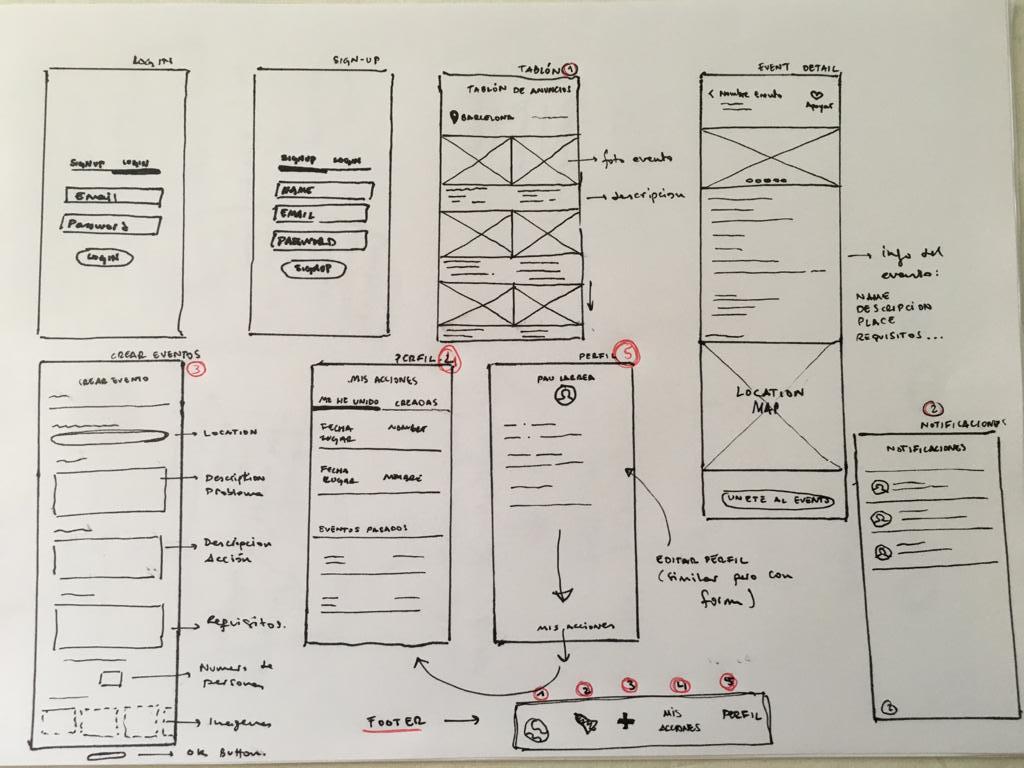 LOG IN
SIGNUP LOGIN
Email
Password
LOGIN
SIGN-UP
SIGNUP LOGIN
NAME
EMAIL
PASSWORD
SIGNUP
TABLÓN 1
TABLÓN DE ANUNCIOS
BARCELONA
foto evento
descripcion
EVENT DETAIL
< Nombre Evento
Apoyar
info del
evento:
NAME
DESCRIPCION
PLACE
REQUISITOS...
LOCATION
MAP
UNETE AL EVENTO
CREAR EVENTOS
3
CREAR EVENTO
LOCATION
Description
Problema
Descripcion
Acción
Requisitos.
Numero de
personas
Imagenes
OK Button.
PERFIL 4
MIS ACCIONES
ME HE UNIDO CREADAS
FECHA NOMBRE
LUGAR
FECHA NOMBRE
LUGAR
EVENTOS PASADOS
PERFIL 5
PAU LARREA
MIS ACCIONES
EDITAR PERFIL
(similar pero con
form)
2
NOTIFICACIONES
NOTIFICACIONES
FOOTER
1 2 3 4 5
MIS
ACCIONES
PERFIL